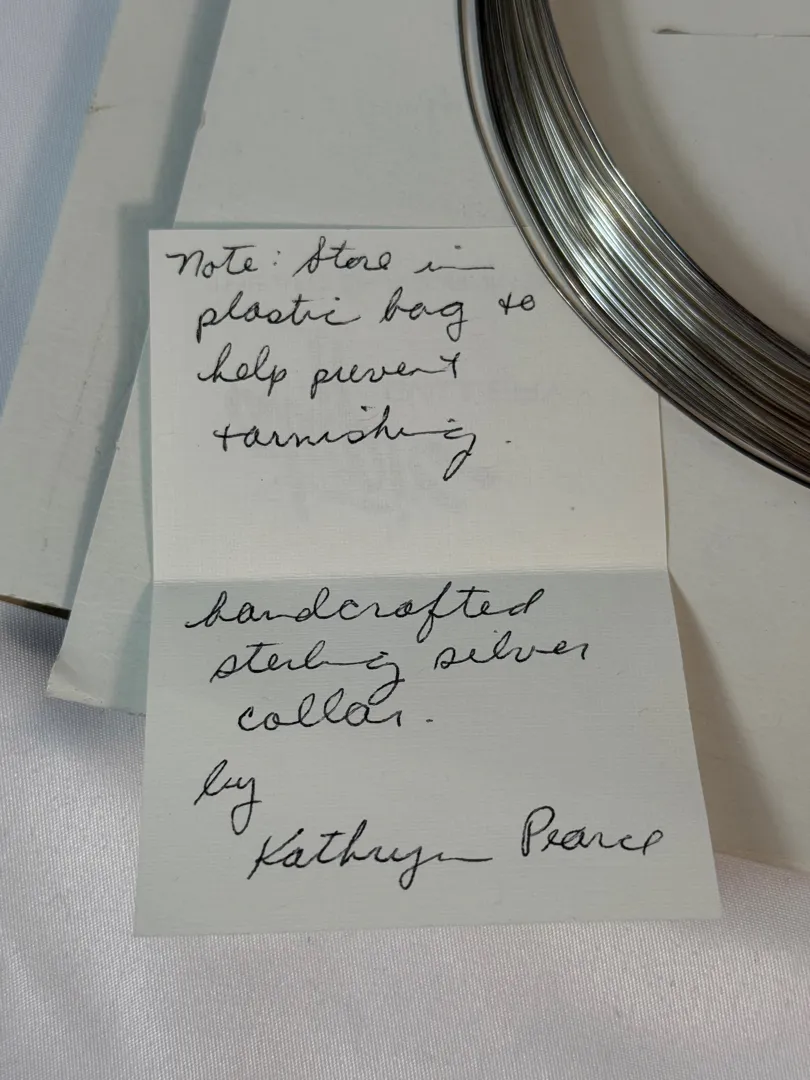 Note: Store in
plastic bag to
help prevent
tarnishing.
handcrafted
sterling silver
collar.
by
Kathryn Pearce